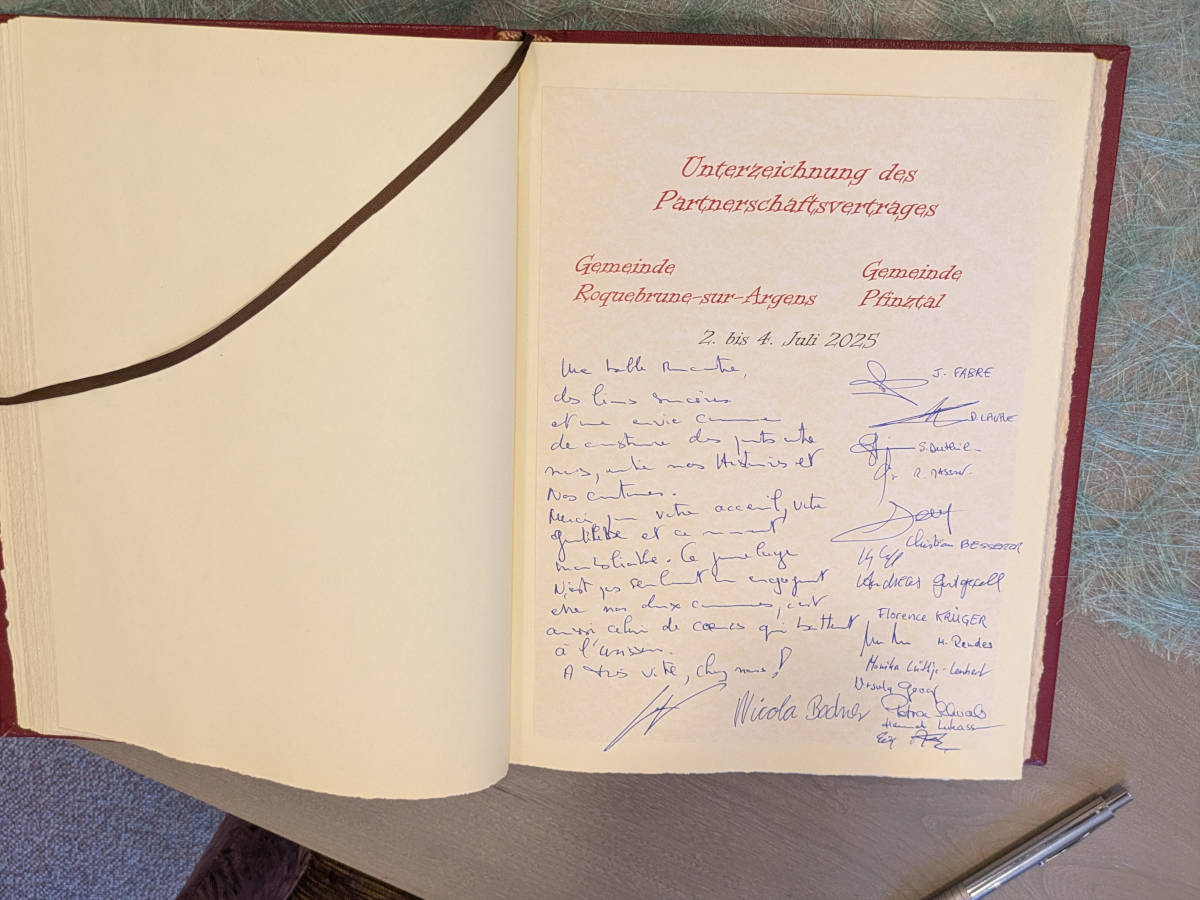 Unterzeichnung des
Partnerschaftsvertrages
Gemeinde
Roquebrune-sur-Argens
Gemeinde
Pfinztal
2. bis 4. Juli 2025
Une belle rencontre,
des liens sincères
et une envie commune
de construire des ponts entre
nous, entre nos Histoires et
Nos cultures.
Merci pour votre accueil, votre
gentillesse et ce moment
inoubliable. Ce jumelage
N'est pas seulement un engagement
entre nos deux communes, c'est
aussi celui de coeurs qui battent
à l'unisson.
A très vite, chez nous !
J. FABRE
D. LAURE
S. 
R. MASSON
Christian BESSERER
Andreas
Florence KRÜGER
M. Rendes
Monika Lüthje-Lenhart
Ursula
Nicola Bodner